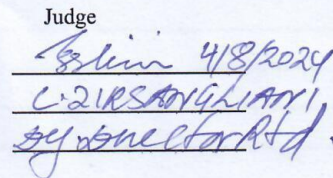 Judge
4/8/2024
C. ZIRSANGLIANI,
Dy. Director Rtd.